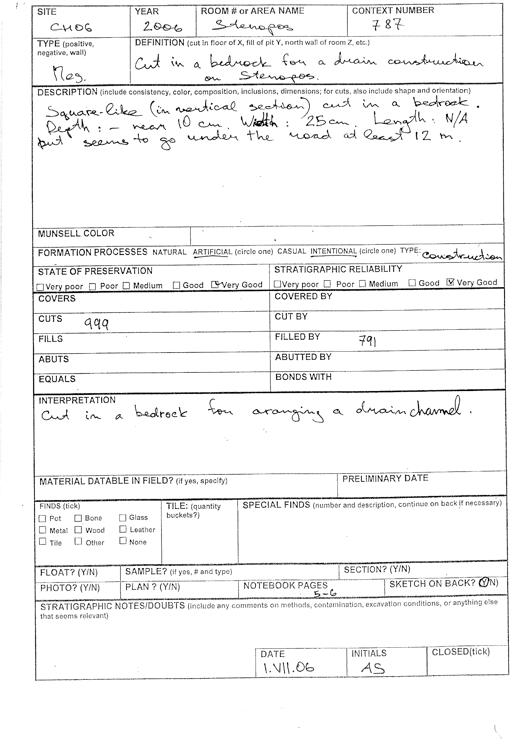 SITE YEAR ROOM # or AREA NAME CONTEXT NUMBER
CH06 2006 Stenopos 787
TYPE (positive, negative, wall) DEFINITION (cut in floor of X, fill of pit Y, north wall of room Z, etc.)
Neg. Cut in a bedrock for a drain construction
on Stenopos.
DESCRIPTION (include consistency, color, composition, inclusions, dimensions; for cuts, also include shape and orientation)
Square-like (in vertical section) cut in a bedrock.
Depth: - near 10 cm. Width: 25cm. Length: N/A
but seems to go under the road at least 12 m.
MUNSELL COLOR
FORMATION PROCESSES NATURAL ARTIFICIAL (circle one) CASUAL INTENTIONAL (circle one) TYPE: Construction
STATE OF PRESERVATION STRATIGRAPHIC RELIABILITY
☐Very poor ☐ Poor ☐ Medium ☐ Good ☑Very Good ☐Very poor ☐ Poor ☐ Medium ☐ Good ☑ Very Good
COVERS COVERED BY
CUTS 999 CUT BY
FILLS FILLED BY 791
ABUTS ABUTTED BY
EQUALS BONDS WITH
INTERPRETATION
Cut in a bedrock for aranging a drainchannel.
MATERIAL DATABLE IN FIELD? (if yes, specify) PRELIMINARY DATE
FINDS (tick) TILE: (quantity buckets?) SPECIAL FINDS (number and description, continue on back if necessary)
☐ Pot ☐ Bone ☐ Glass
☐ Metal ☐ Wood ☐ Leather
☐ Tile ☐ Other ☐ None
FLOAT? (Y/N) SAMPLE? (if yes, # and type) SECTION? (Y/N)
PHOTO? (Y/N) PLAN ? (Y/N) NOTEBOOK PAGES 5-6 SKETCH ON BACK? (Y/N)
STRATIGRAPHIC NOTES/DOUBTS (include any comments on methods, contamination, excavation conditions, or anything else
that seems relevant)
DATE INITIALS CLOSED(tick)
1.VII.06 AS